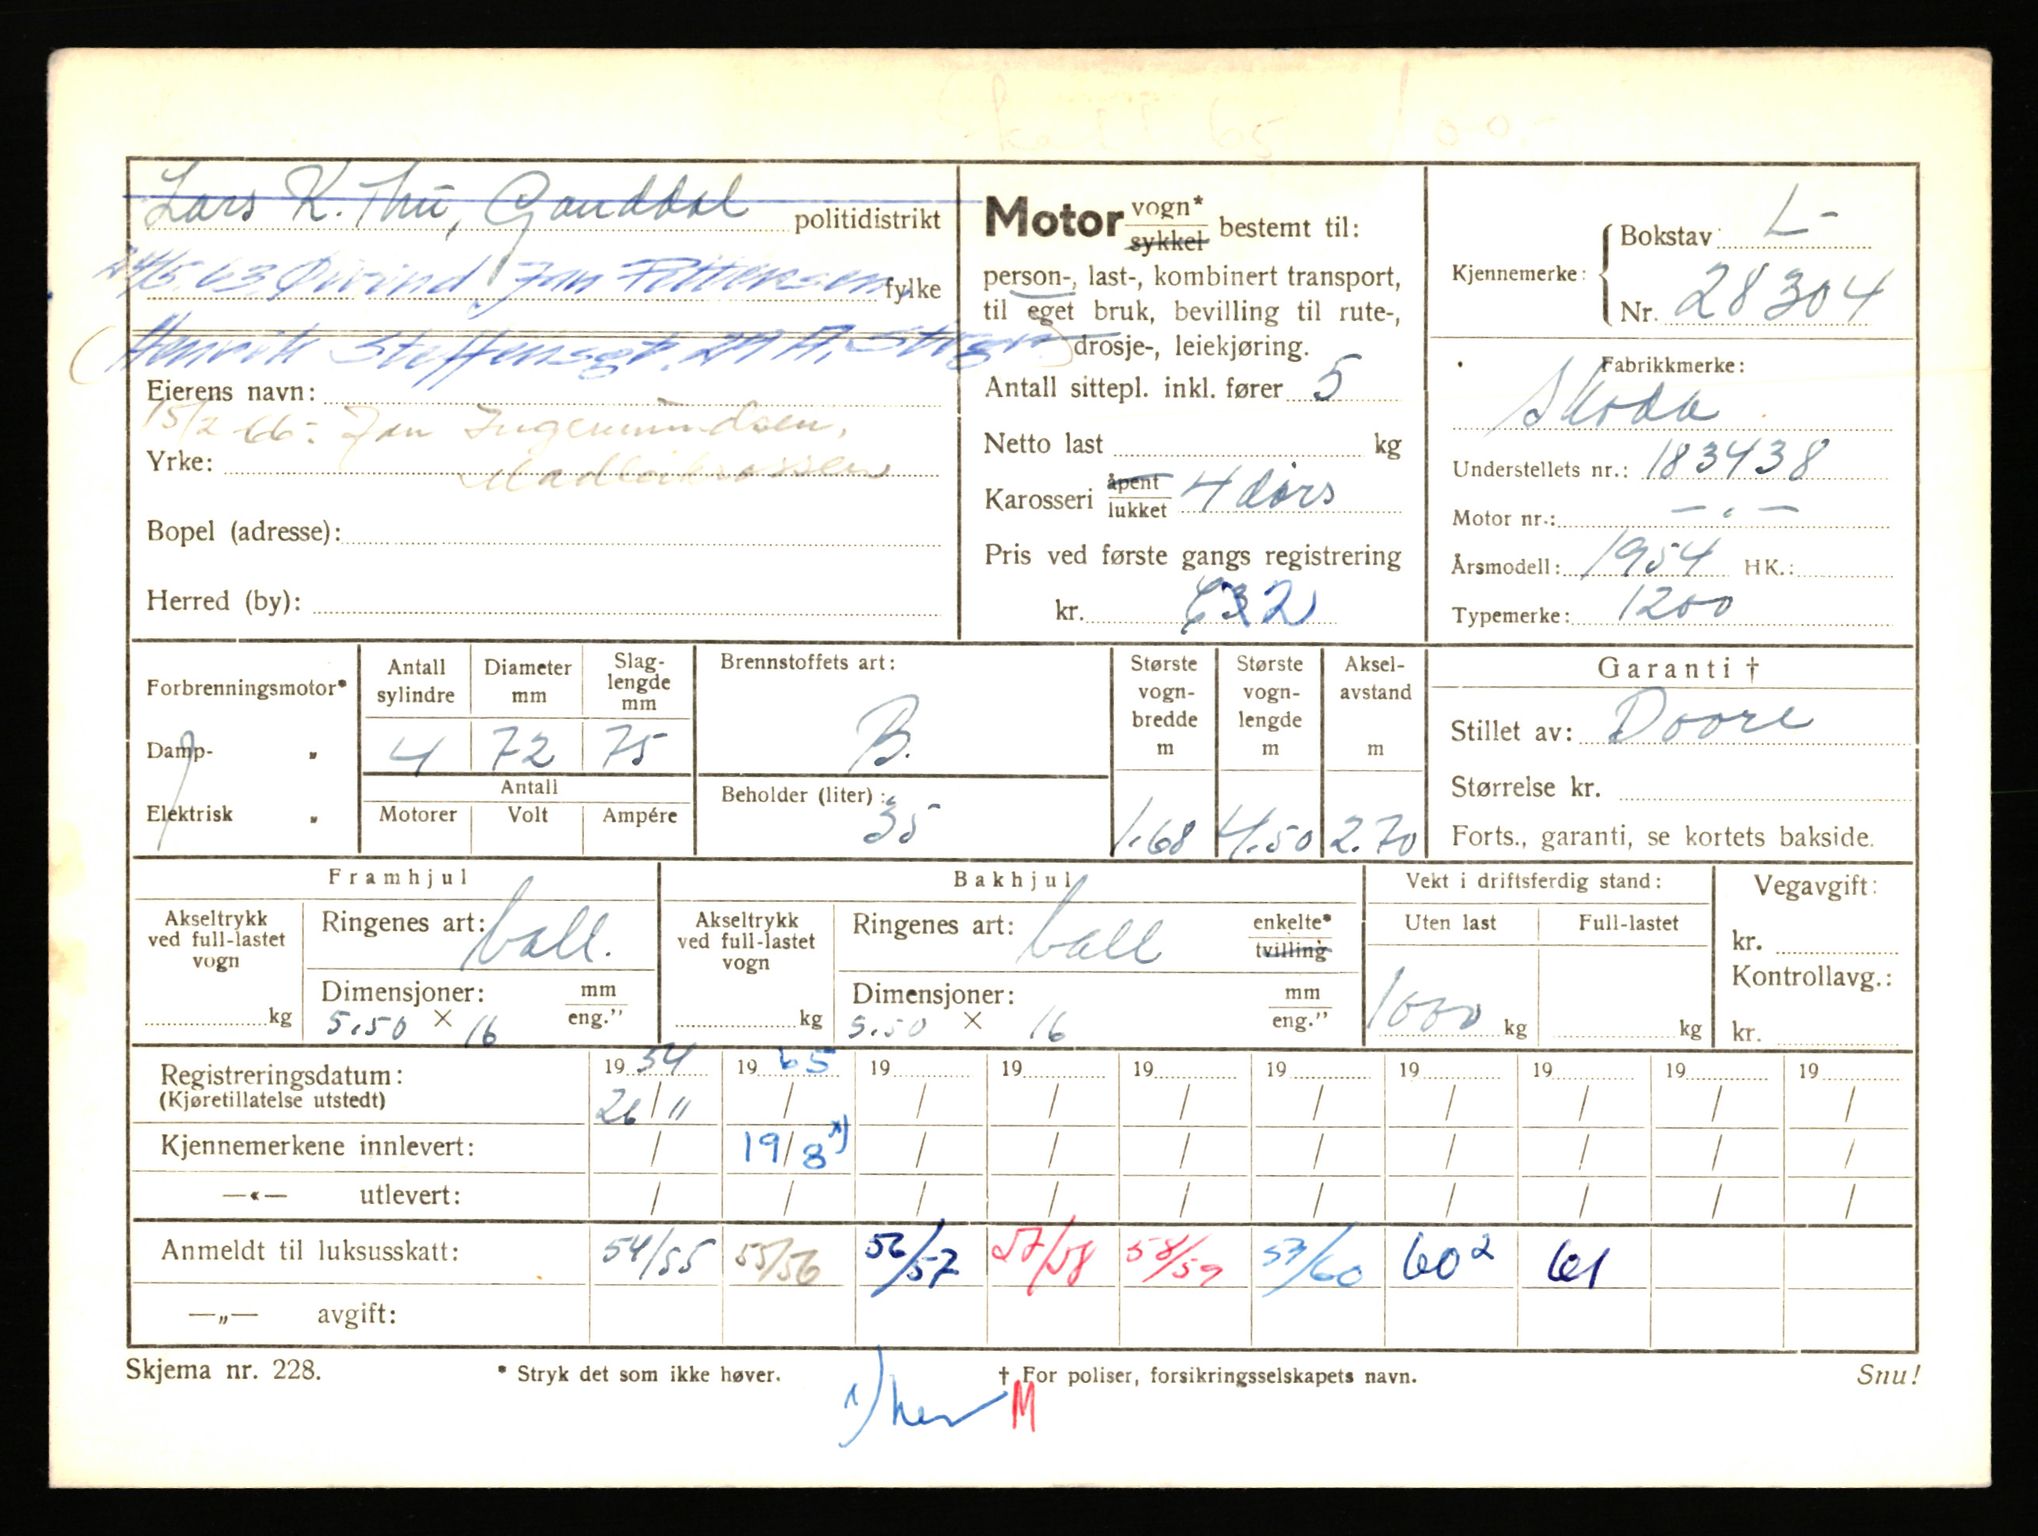 Lars K. Thu, Ganddal politidistrikt
24/5.63 Øivind Jan Pettersen, fylke
Henrik Steffensgt. 24 A, Stvgr.
Eierens navn:
15/2-66: Jan Ingemundsen,
Yrke:
Bopel (adresse):
Herred (by):
Motor vogn* sykkel bestemt til:
person-, last-, kombinert transport,
til eget bruk, bevilling til rute-,
drosje-, leiekjøring.
Antall sittepl. inkl. fører 5
Netto last kg
Karosseri åpent lukket 4 dørs
Pris ved første gangs registrering
kr.
Kjennemerke: Bokstav L-
Nr. 28304
Fabrikkmerke:
Skoda
Understellets nr.: 183438
Motor nr.: - „ -
Årsmodell: 1954 HK.:
Typemerke: 1200
Forbrenningsmotor*
Damp- „
Elektrisk „
Antall sylindre
4
Diameter mm
72
Slag-lengde mm
75
Antall
Motorer Volt Ampére
Brennstoffets art:
B.
Beholder (liter):
35
Største vogn-bredde m
1.68
Største vogn-lengde m
4.50
Aksel-avstand m
2.70
Garanti †
Stillet av: Doore
Størrelse kr.
Forts., garanti, se kortets bakside.
Framhjul
Akseltrykk ved full-lastet vogn
kg
Ringenes art: ball.
Dimensjoner: mm eng."
5.50 × 16
Bakhjul
Akseltrykk ved full-lastet vogn
kg
Ringenes art: ball enkelte* tvilling
Dimensjoner: mm eng."
5.50 × 16
Vekt i driftsferdig stand:
Uten last Full-lastet
1000 kg kg
Vegavgift:
kr.
Kontrollavg.:
kr.
Registreringsdatum: 1954 1965 19 19 19 19 19 19 19 19
(Kjøretillatelse utstedt) 26/11 / / / / / / / / /
Kjennemerkene innlevert: / 19/8 x) / / / / / / / /
—«— utlevert: / / / / / / / / / /
Anmeldt til luksusskatt: 54/55 55/56 56/57 57/58 58/59 59/60 60² 61
—„— avgift:
Skjema nr. 228. * Stryk det som ikke høver. † For poliser, forsikringsselskapets navn. Snu!
M